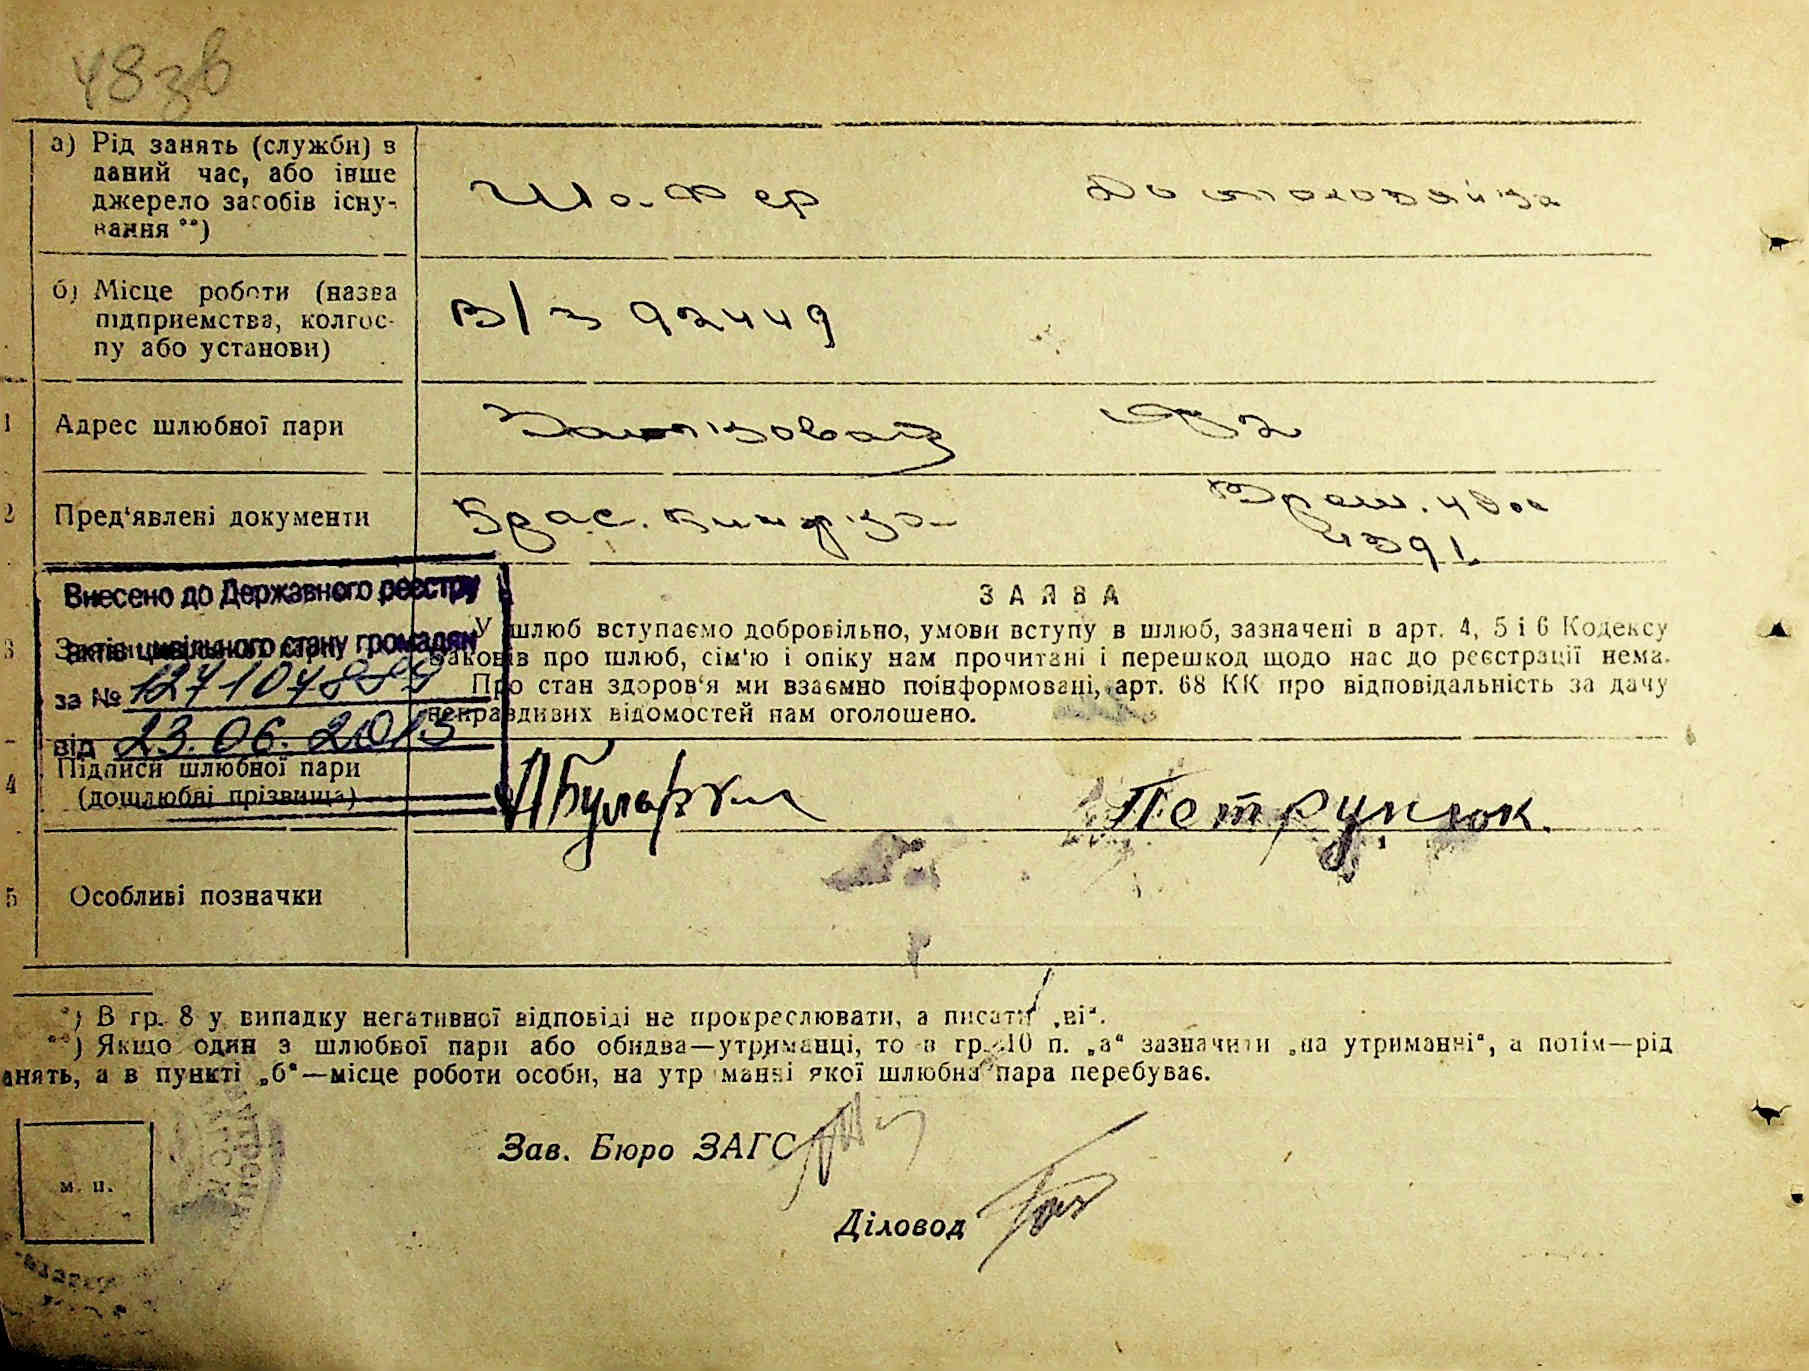 48зв
а) Рід занять (служби) в
даний час, або інше
джерело засобів існу-
вання **)
Шофер
Домогосподарка
б) Місце роботи (назва
підприємства, колгос-
пу або установи)
В/з 92449
1 Адрес шлюбної пари
2 Пред'явлені документи
Крас. книжка
4391
Внесено до Державного реєстру
актів цивільного стану громадян
за № 1271047889
від 23.06.2015
3
ЗАЯВА
У шлюб вступаємо добровільно, умови вступу в шлюб, зазначені в арт. 4, 5 і 6 Кодексу
законів про шлюб, сім'ю і опіку нам прочитані і перешкод щодо нас до реєстрації нема.
Про стан здоров'я ми взаємно поінформовані, арт. 68 КК про відповідальність за дачу
неправдивих відомостей нам оголошено.
4 Підписи шлюбної пари
(дошлюбні прізвища)
Петрунюк.
5 Особливі позначки
*) В гр. 8 у випадку негативної відповіді не прокреслювати, а писати „ні“.
**) Якщо один з шлюбної пари або обидва—утриманці, то в гр. 10 п. „а“ зазначити „на утриманні“, а потім—рід
анять, а в пункті „б“—місце роботи особи, на утриманні якої шлюбна пара перебуває.
Зав. Бюро ЗАГС
м. п.
Діловод